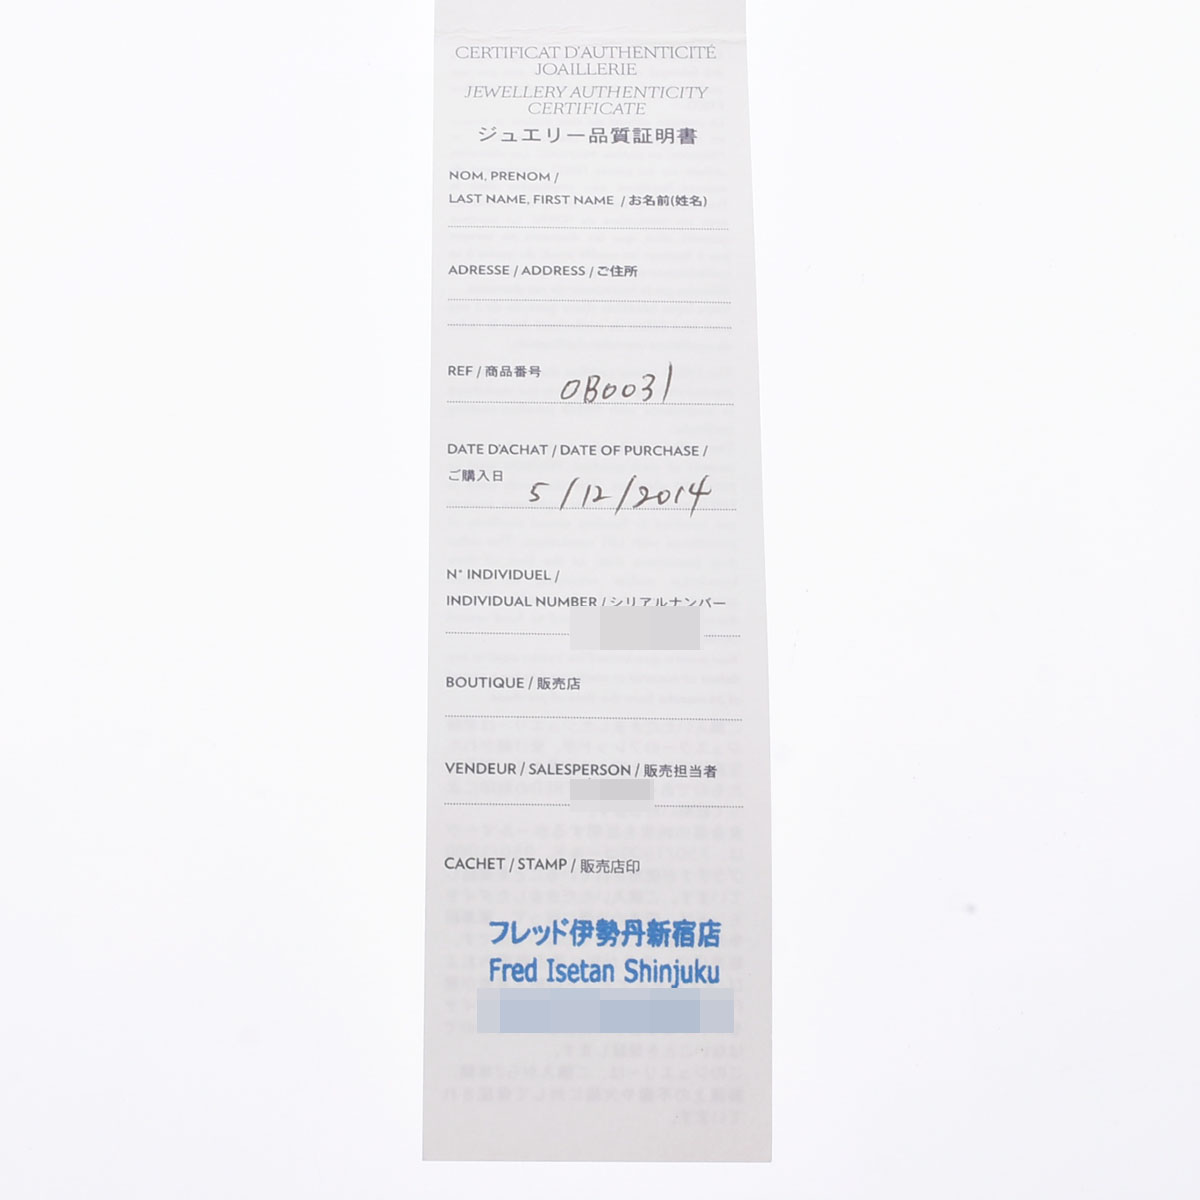 CERTIFICAT D'AUTHENTICITÉ
JOAILLERIE
JEWELLERY AUTHENTICITY
CERTIFICATE
ジュエリー品質証明書
NOM, PRENOM /
LAST NAME, FIRST NAME / お名前(姓名)
ADRESSE / ADDRESS / ご住所
REF / 商品番号 0B0031
DATE D'ACHAT / DATE OF PURCHASE /
ご購入日 5/12/2014
N° INDIVIDUEL /
INDIVIDUAL NUMBER / シリアルナンバー
BOUTIQUE / 販売店
VENDEUR / SALESPERSON / 販売担当者
CACHET / STAMP / 販売店印
フレッド伊勢丹新宿店
Fred Isetan Shinjuku